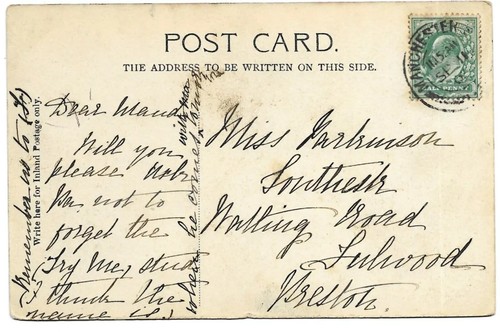 POST CARD.
THE ADDRESS TO BE WRITTEN ON THIS SIDE.
Write here for Inland Postage only.
Dear Maud
Will you
please
Pa. not to
forget the
Try Me, stud
think the
name is.)
when he comes
with
Remember me to
Miss Parkinson
Southesk
Watling Road
Fulwood
Preston.
MANCHESTER
HALF PENNY